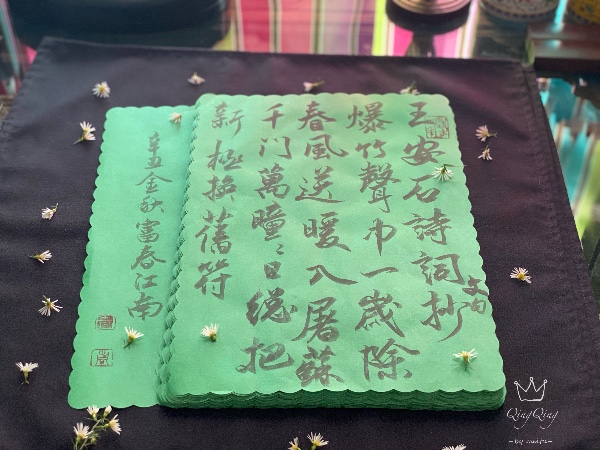 王安石詩詞抄
爆竹聲中一歲除
春風送暖入屠蘇
千门萬曈〻日總把
新桃換舊符
辛丑金秋富春江南
QingQing